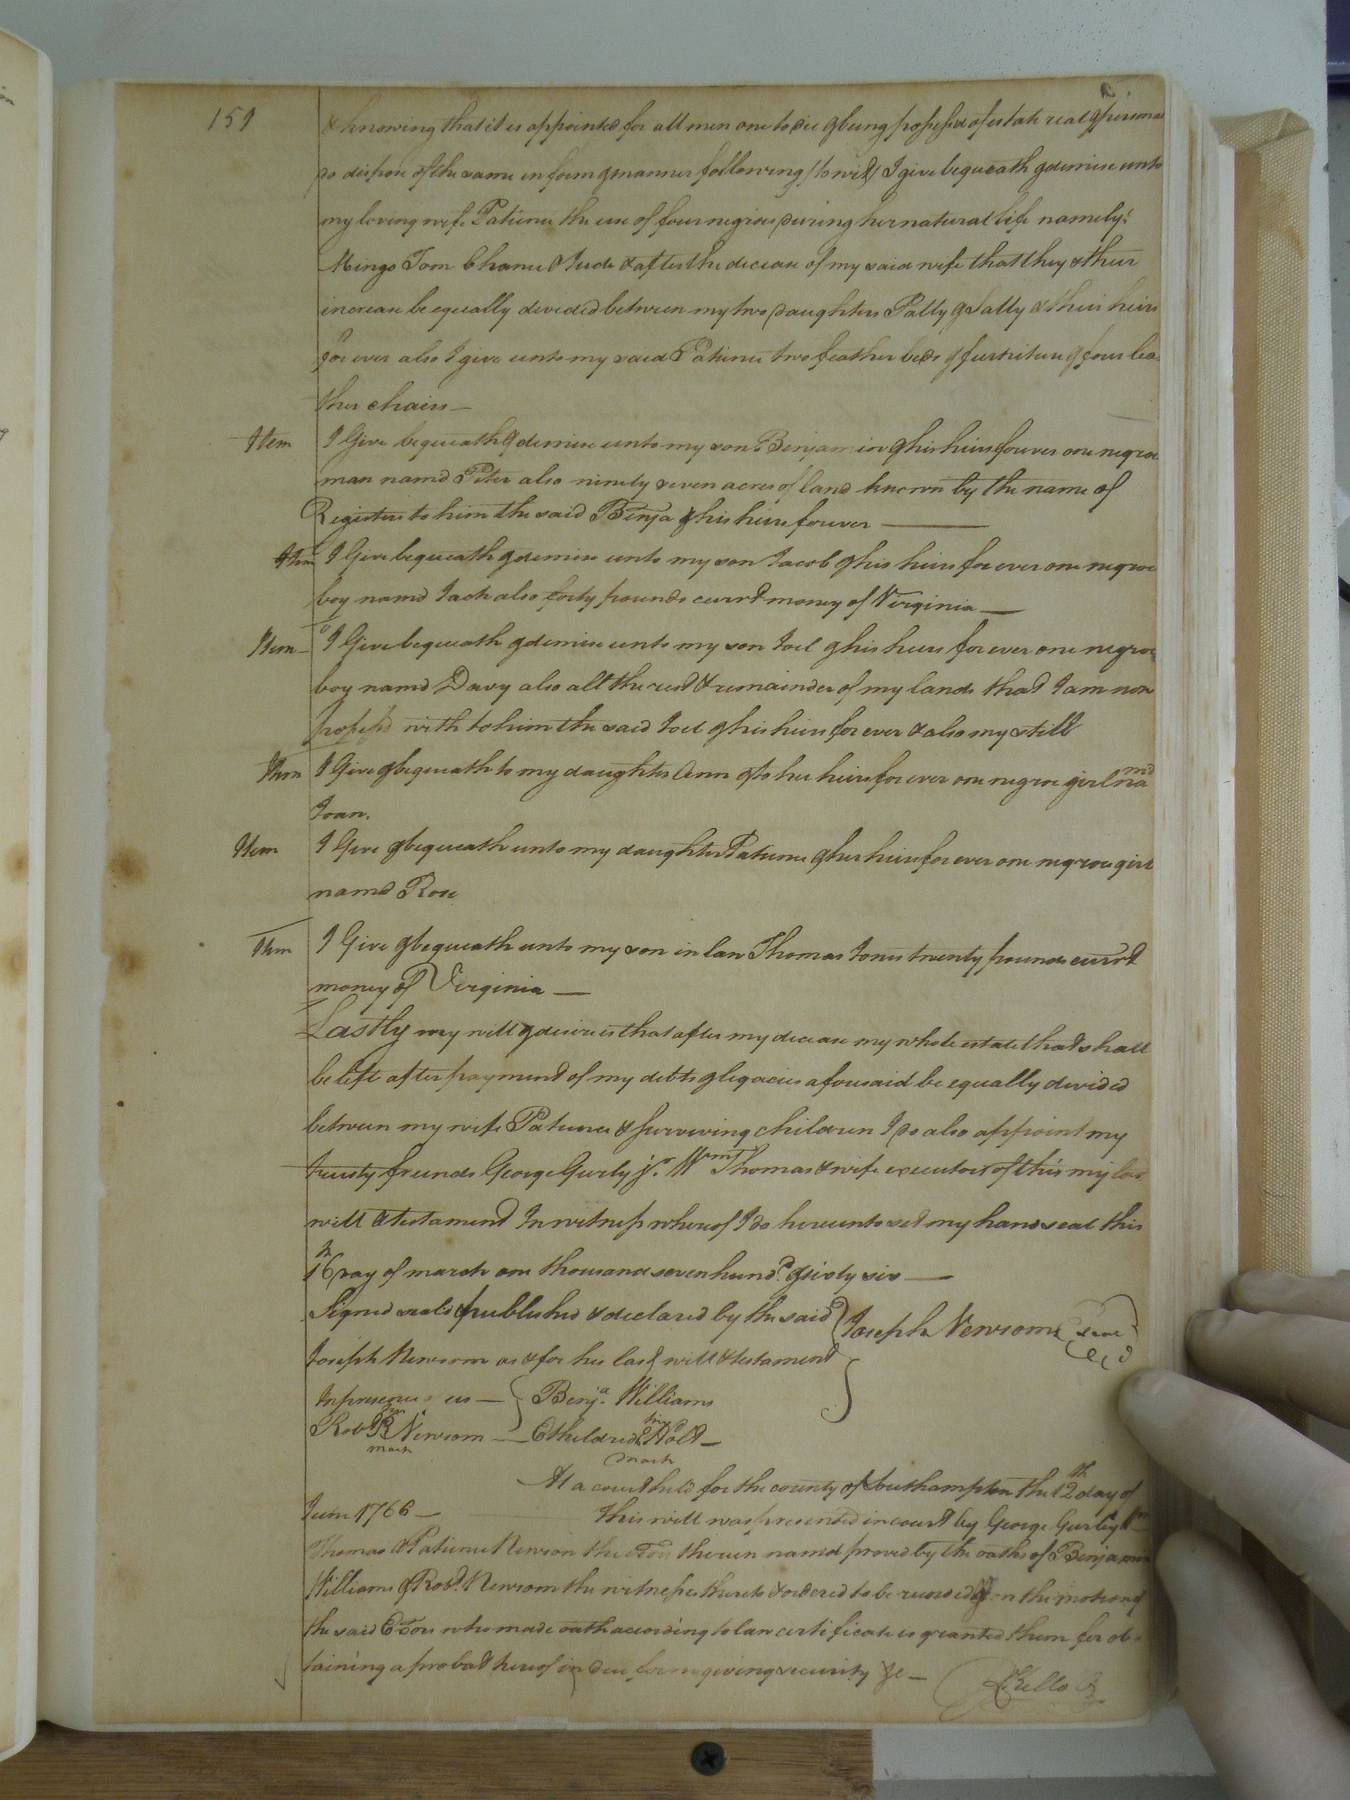 151
& knowing that it is appointed for all men one to die & being possess'd of estate real & personal
do dispose of the same in form & manner following (to wit) I give bequeath & demise unto
my loving wife Patience the use of four negroes during her natural life namely:
Mingo Tom Chance & Jude & after the decease of my said wife that they & their
increase be equally devided between my two daughters Patty & Sally & their heirs
for ever also I give unto my said Patience two feather beds & furniture & four lea
ther chairs —
Item I Give bequeath & demise unto my son Benjamin & his heirs forever one negroe
man namd Peter also ninety seven acres of land known by the name of
Registers to him the said Benja & his heirs forever —
Item I Give bequeath & demise unto my son Jacob & his heirs for ever one negroe
boy namd Jack also forty pounds currt money of Virginia —
Item I Give bequeath & demise unto my son Joel & his heirs for ever one negroe
boy namd Davy also all the rest & remainder of my lands that I am now
possess'd with to him the said Joel & his heirs for ever & also my still
Item I Give & bequeath to my daughter Ann & to her heirs for ever one negroe girl namd
Joan.
Item I Give & bequeath unto my daughter Patience & her heirs for ever one negroe girl
namd Rose
Item I Give & bequeath unto my son in law Thomas Jones twenty pounds currt
money of Virginia —
Lastly my will & desire is that after my decease my whole estate that shall
be left after payment of my debts & legacies aforesaid be equally devided
between my wife Patience & surviving children I do also appoint my
trusty friends George Gurly jr. Wm Thomas & wife executors of this my last
will & testament In witness whereof I do hereunto set my hand seal this
16th day of march one thousand seven hund.d & sixty six —
Signed seald & published & declared by the said } Joseph Newsom (seal)
Joseph Newsom as & for his last will & testament
In presence us — { Benja. Williams
Robt R Newsom — Etheldred Holt —
mark mark
At a court held for the county of Southampton the 12th day of
June 1766 — This will was presented in court by George Gurley Wm
Thomas & Patience Newsom the Exors therein named proved by the oaths of Benjamin
Williams & Robt. Newsom the witnesses thereto & ordered to be recorded & on the motion of
the said Exors who made oath according to law certificate is granted them for ob-
taining a probat thereof in due form giving security &c —
RKello